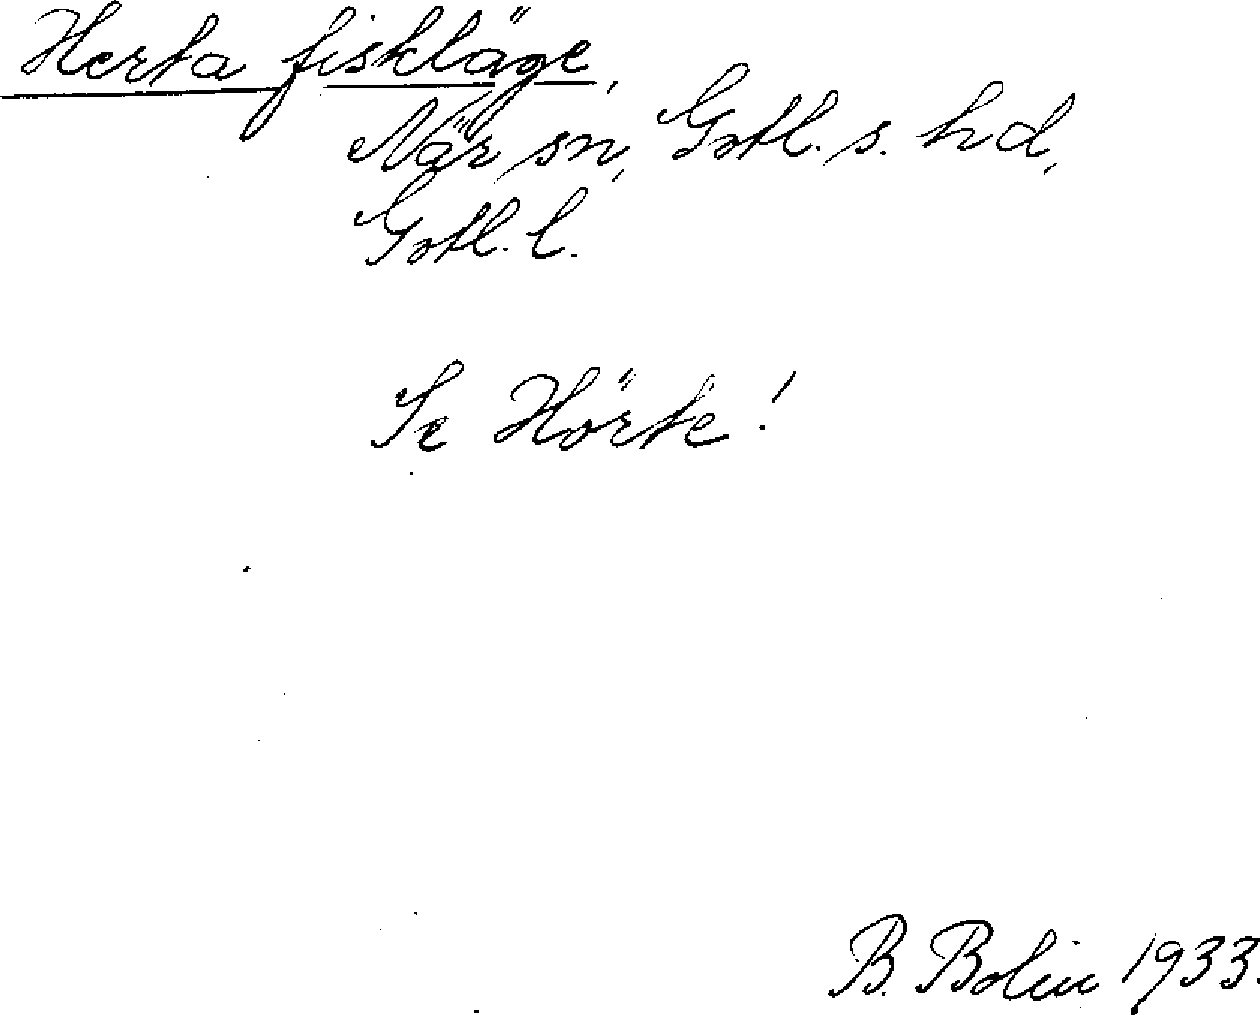 Herta fiskläge,
När sn, Gotl. s. hd,
Gotl. l.
Se Hörte!
B. Bolin 1933.